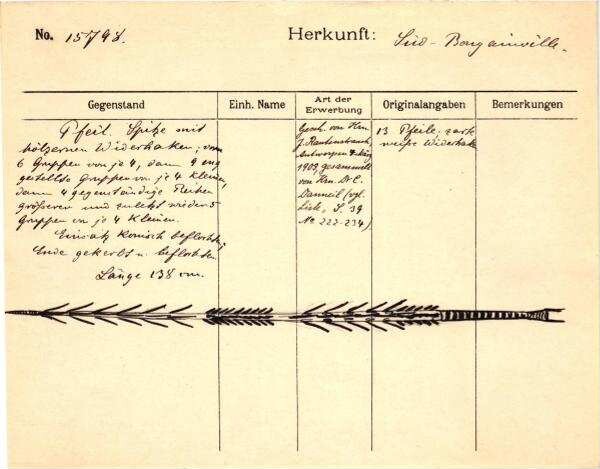 No. 15798.
Herkunft: Süd-Bougainville.
Gegenstand
Einh. Name
Art der Erwerbung
Originalangaben
Bemerkungen
Pfeil. Spitze mit
hölzernen Widerhaken, vorn
6 Gruppen von je 4, dann 9 eng
gestellte Gruppen von je 4 kleinen,
dann 4 gegenständige Reihen
größeren und zuletzt wieder 5
Gruppen von je 4 kleinen.
Einsatz konisch beflochten,
Ende gekerbt u. beflochten.
Länge 138 cm.
Gesch. von Hrn
J. Rautenstrauch,
Antwerpen
1909, gesammelt
von Hrn. Dr. C.
Danneil (vgl.
Liste, S. 39
No 222-234)
13 Pfeile,
Widerhak